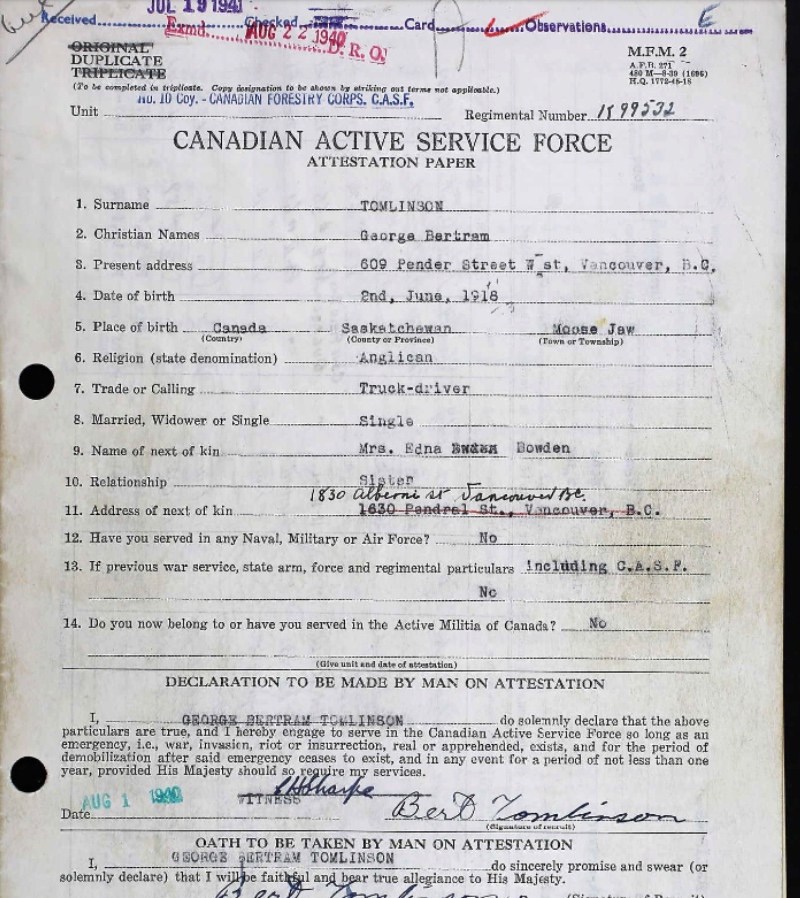 JUL 19 1941
Received Checked Card Observations E
Exmd. AUG 22 1940 D.R.O.
ORIGINAL
DUPLICATE
TRIPLICATE
M.F.M. 2
A.F.B. 271
480 M—8-39 (1696)
H.Q. 1772-45-18
(To be completed in triplicate. Copy designation to be shown by striking out terms not applicable.)
No. 10 Coy. - CANADIAN FORESTRY CORPS. C.A.S.F.
Unit Regimental Number K 99532
CANADIAN ACTIVE SERVICE FORCE
ATTESTATION PAPER
1. Surname TOMLINSON
2. Christian Names George Bertram
3. Present address 609 Pender Street West, Vancouver, B.C.
4. Date of birth 2nd, June, 1918
5. Place of birth Canada Saskatchewan Moose Jaw
(Country) (County or Province) (Town or Township)
6. Religion (state denomination) Anglican
7. Trade or Calling Truck-driver
8. Married, Widower or Single Single
9. Name of next of kin Mrs. Edna Bowden
10. Relationship Sister
1830 Alberni st Vancouver BC.
11. Address of next of kin 1630 Pendrel St., Vancouver, B.C.
12. Have you served in any Naval, Military or Air Force? No
13. If previous war service, state arm, force and regimental particulars including C.A.S.F.
No
14. Do you now belong to or have you served in the Active Militia of Canada? No
(Give unit and date of attestation)
DECLARATION TO BE MADE BY MAN ON ATTESTATION
I, GEORGE BERTRAM TOMLINSON do solemnly declare that the above
particulars are true, and I hereby engage to serve in the Canadian Active Service Force so long as an
emergency, i.e., war, invasion, riot or insurrection, real or apprehended, exists, and for the period of
demobilization after said emergency ceases to exist, and in any event for a period of not less than one
year, provided His Majesty should so require my services.
Date AUG 1 1940 WITNESS Bert Tomlinson
(Signature of recruit)
OATH TO BE TAKEN BY MAN ON ATTESTATION
I, GEORGE BERTRAM TOMLINSON do sincerely promise and swear (or
solemnly declare) that I will be faithful and bear true allegiance to His Majesty.
Bert Tomlinson